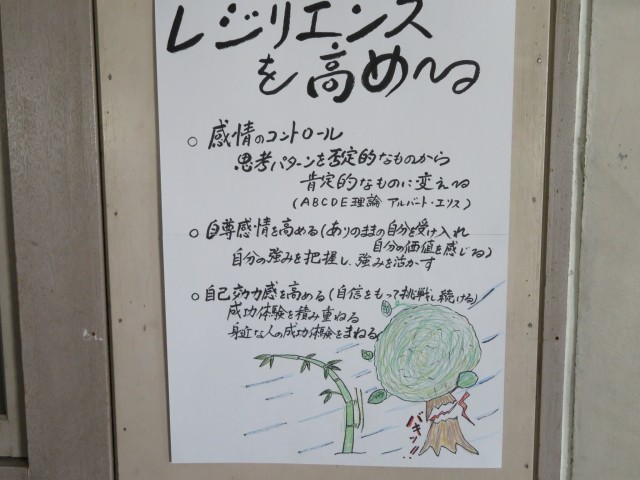 レジリエンス
を高める
○ 感情のコントロール
思考パターンを否定的なものから
肯定的なものに変える
(ABCDE理論 アルバート・エリス)
○ 自尊感情を高める(ありのままの自分を受け入れ
自分の価値を感じる)
自分の強みを把握し、強みを活かす
○ 自己効力感を高める(自信をもって挑戦し続ける)
成功体験を積み重ねる
身近な人の成功体験をまねる
バキッ!!